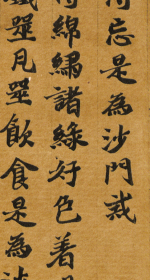 忘是為沙門戒
綿繡諸綵好色着
噐凡噐飲食是為